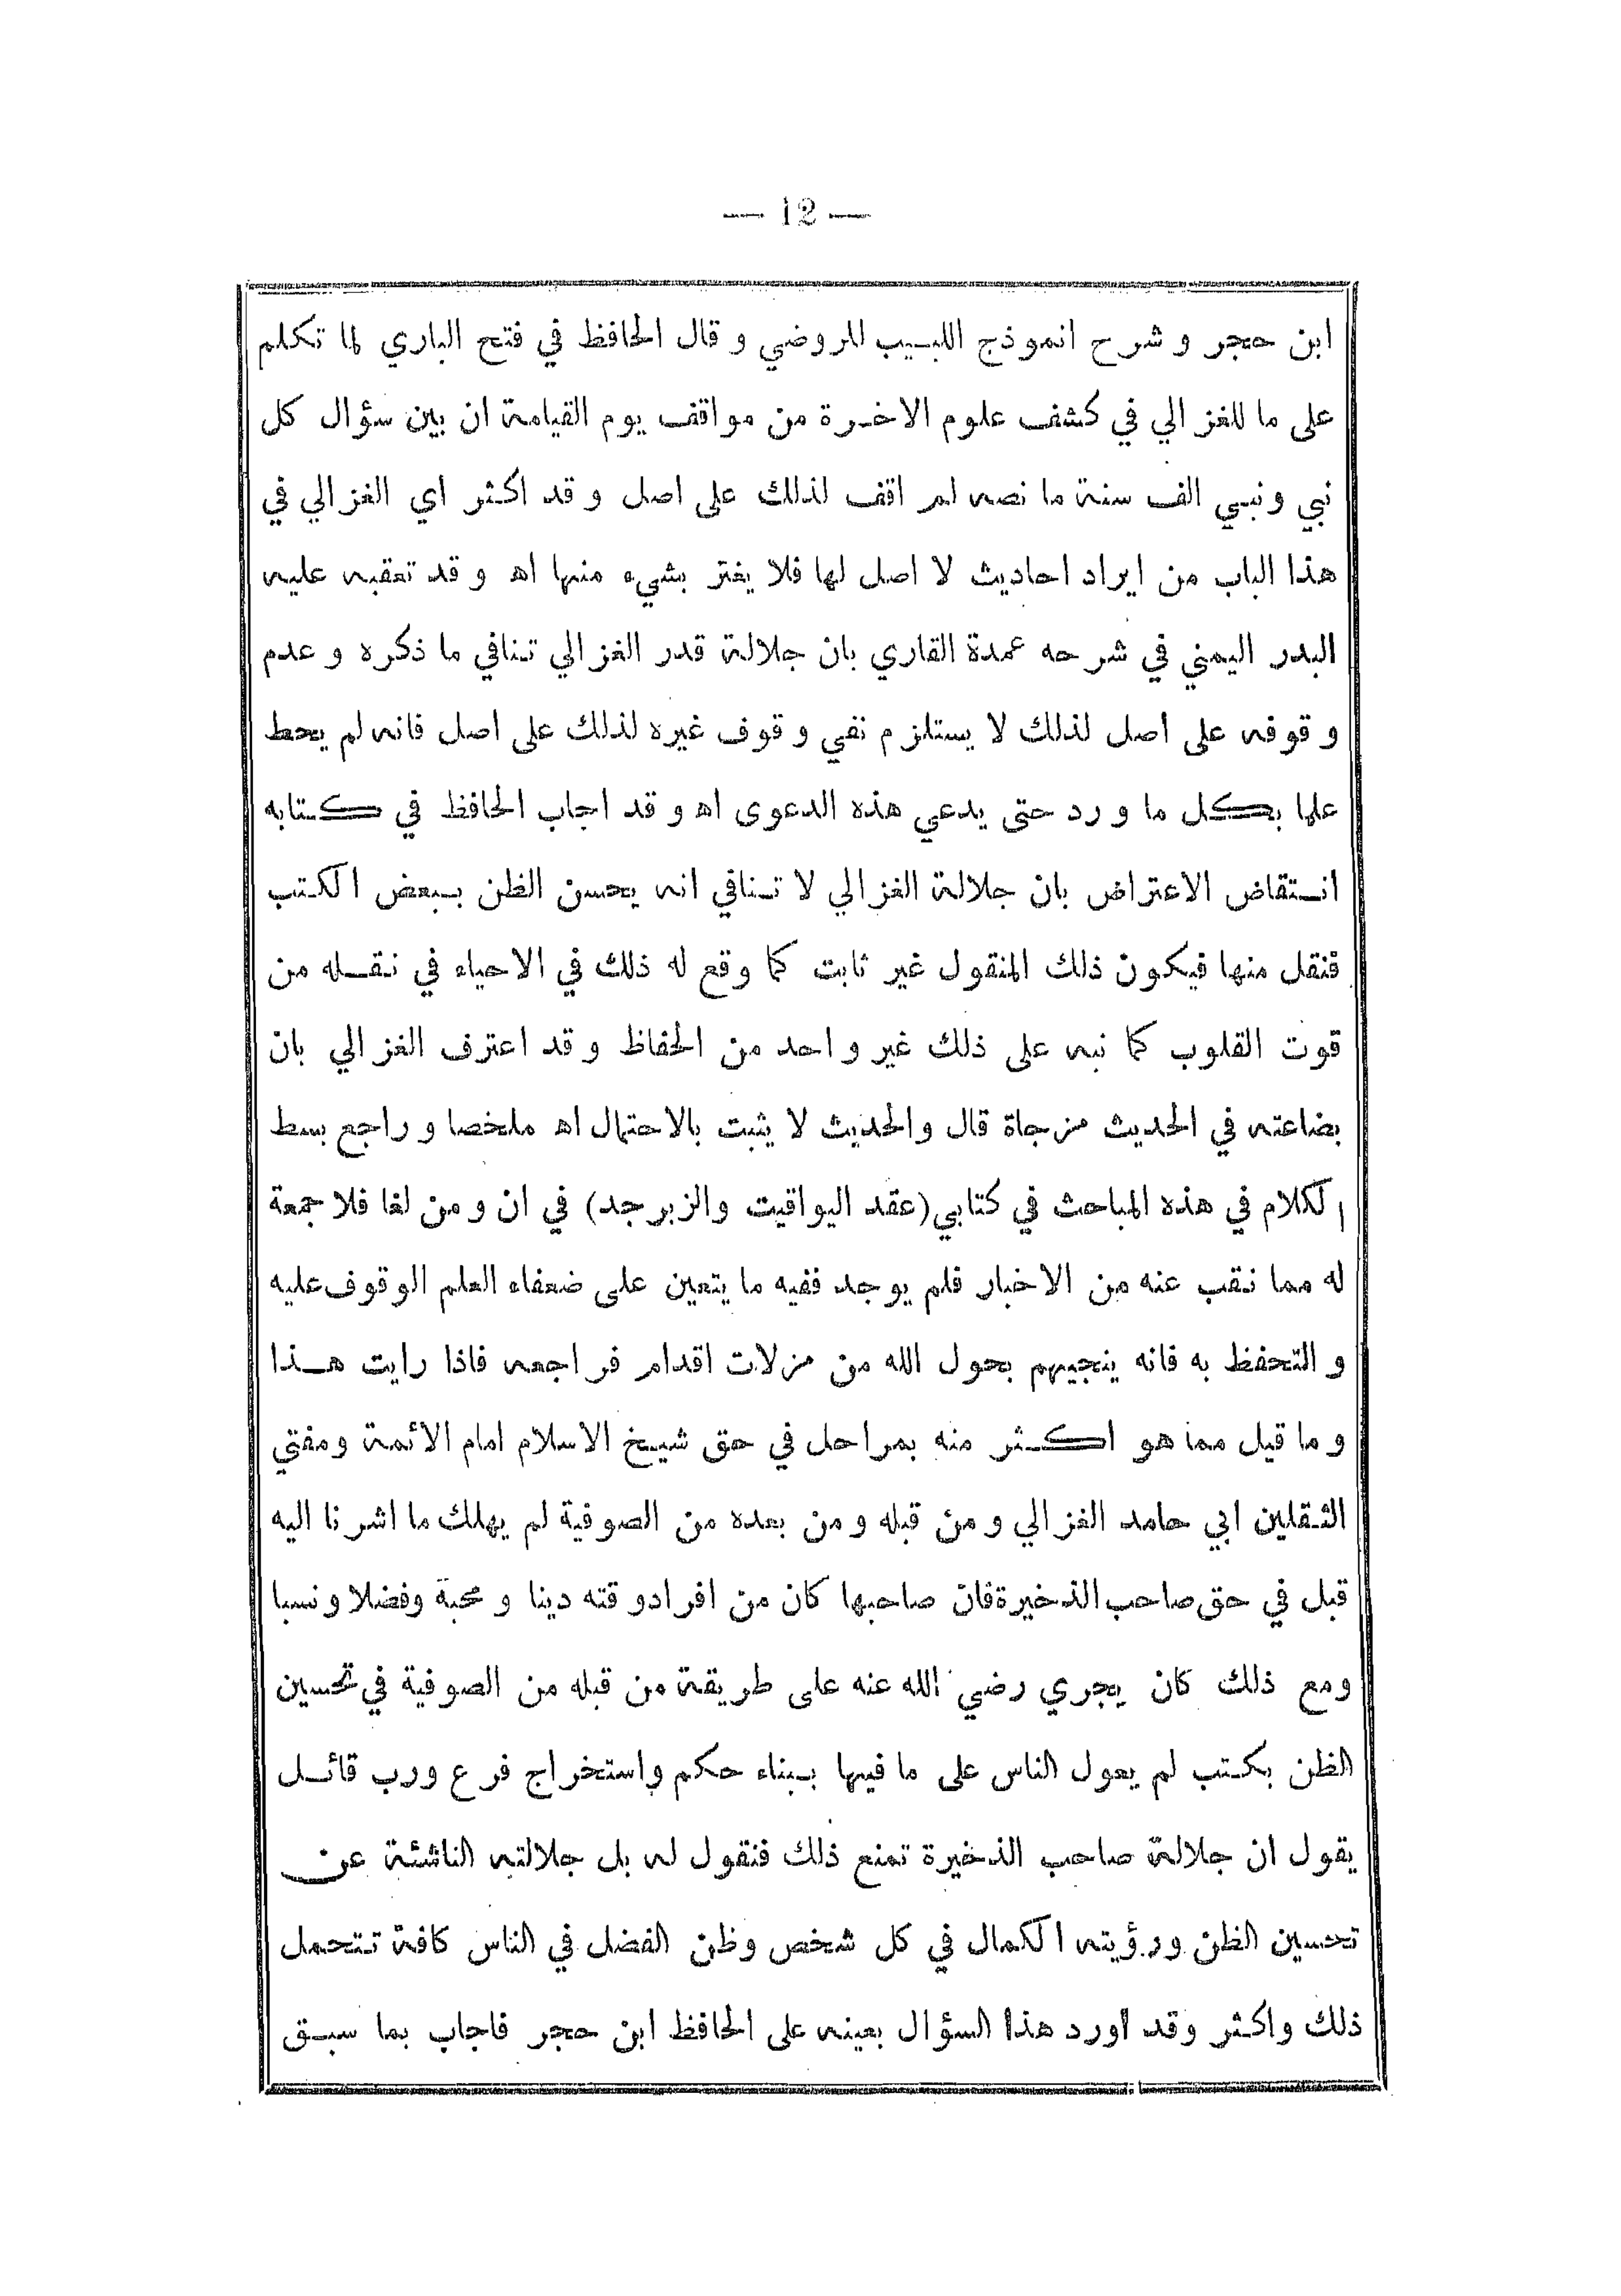 — 12 —
ابن حجر و شرح انموذج اللبيب للروضي و قال الحافظ في فتح الباري لما تكلم
على ما للغزالي في كشف علوم الاخرة من مواقف يوم القيامة ان بين سؤال كل
نبي ونبي الف سنة ما نصه لم اقف لذلك على اصل و قد اكثر اي الغزالي في
هذا الباب من ايراد احاديث لا اصل لها فلا يغتر بشيء منها اه و قد تعقبه عليه
البدر اليمني في شرحه عمدة القاري بان جلالة قدر الغزالي تنافي ما ذكره و عدم
و قوفه على اصل لذلك لا يستلزم نفي و قوف غيره لذلك على اصل فانه لم يحط
علما بكل ما ورد حتى يدعي هذه الدعوى اه و قد اجاب الحافظ في كتابه
انتقاض الاعتراض بان جلالة الغزالي لا تنافي انه يحسن الظن ببعض الكتب
فنقل منها فيكون ذلك المنقول غير ثابت كما وقع له ذلك في الاحياء في نقله من
قوت القلوب كما نبه على ذلك غير واحد من الحفاظ و قد اعترف الغزالي بان
بضاعته في الحديث مزجاة قال والحديث لا يثبت بالاحتمال اه ملخصا و راجع بسط
الكلام في هذه المباحث في كتابي (عقد اليواقيت والزبرجد) في ان و من لغا فلا جمعة
له مما نقب عنه من الاخبار فلم يوجد ففيه ما يتعين على ضعفاء العلم الوقوف عليه
و التحفظ به فانه ينجيهم بحول الله من مزلات اقدام فراجعه فاذا رايت هذا
و ما قيل مما هو اكثر منه بمراحل في حق شيخ الاسلام امام الائمة ومفتي
الثقلين ابي حامد الغزالي و من قبله و من بعده من الصوفية لم يهلك ما اشرنا اليه
قبل في حق صاحب الذخيرة فان صاحبها كان من افراد وقته دينا و محبة وفضلا ونسبا
ومع ذلك كان يجري رضي الله عنه على طريقة من قبله من الصوفية في تحسين
الظن بكتب لم يعول الناس على ما فيها ببناء حكم واستخراج فرع ورب قائل
يقول ان جلالة صاحب الذخيرة تمنع ذلك فنقول له بل جلالته الناشئة عن
تحسين الظن ورؤيته الكمال في كل شخص وظن الفضل في الناس كافة تتحمل
ذلك واكثر وقد اورد هذا السؤال بعينه على الحافظ ابن حجر فاجاب بما سبق